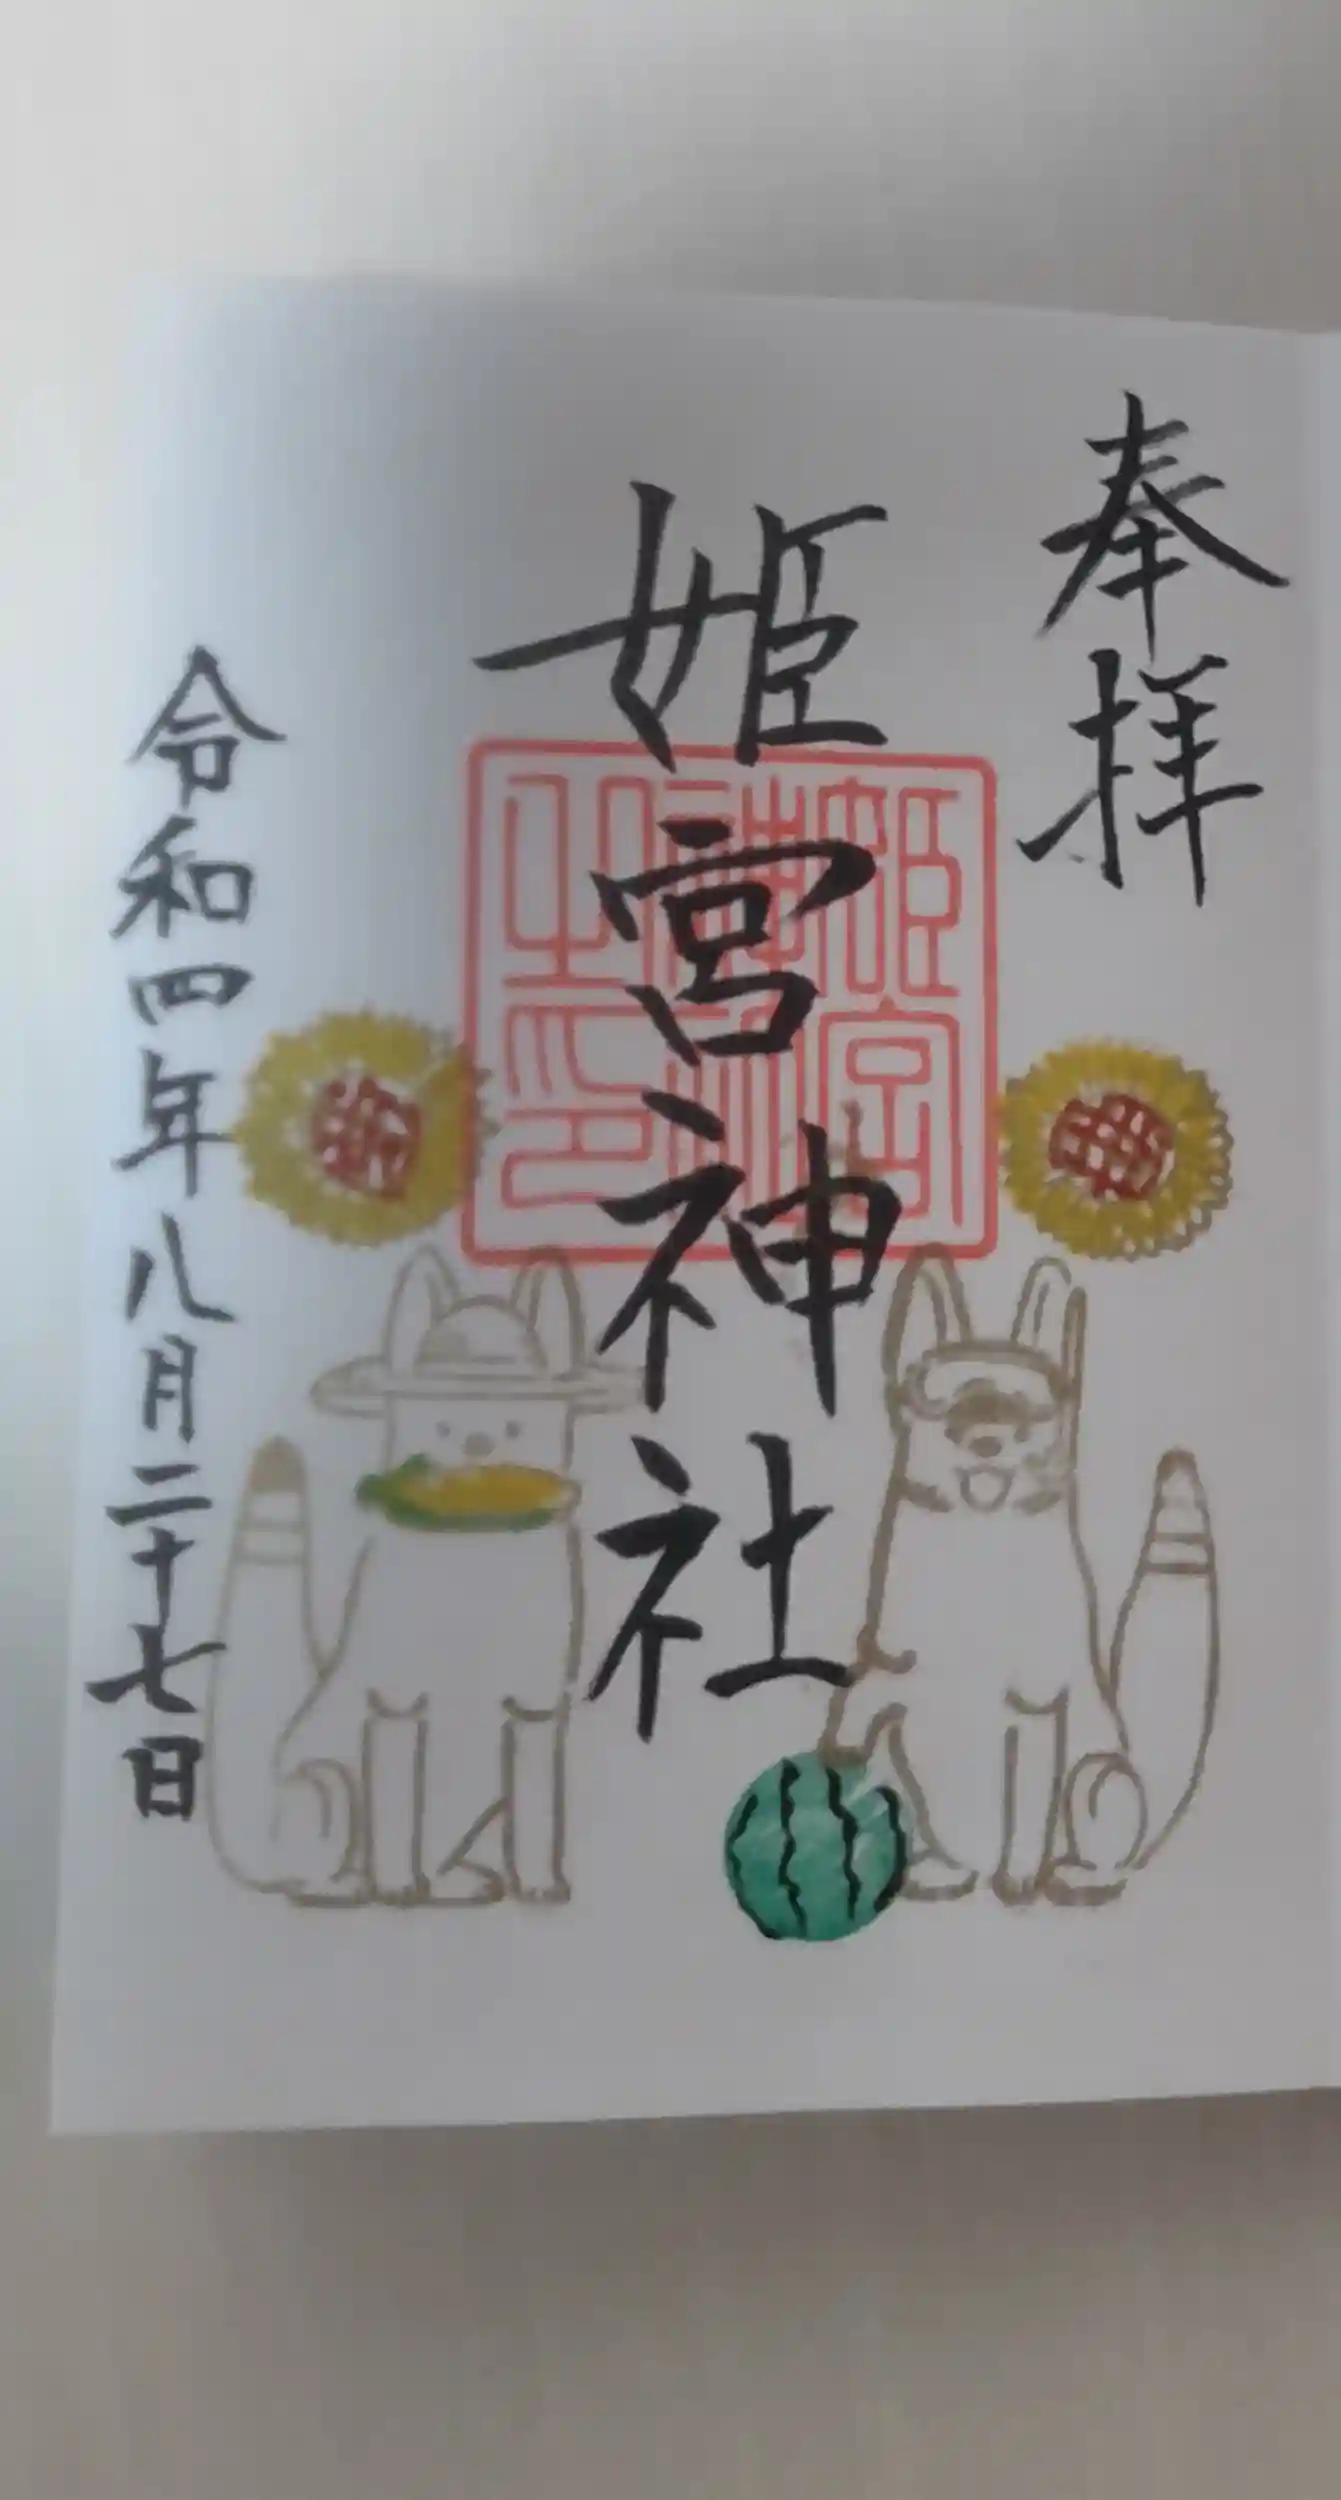 奉拝
姫宮神社
姫宮神社之印
令和四年八月二十七日